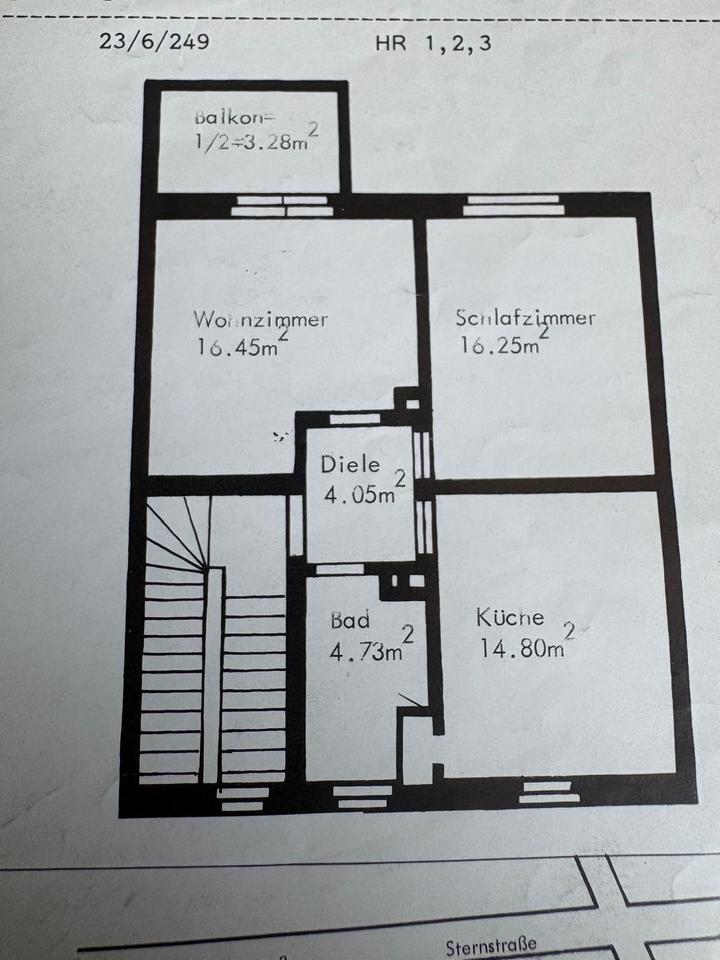 23/6/249 HR 1,2,3
Balkon=
1/2=3.28m²
Wohnzimmer
16.45m²
Schlafzimmer
16.25m²
Diele
4.05m²
Bad
4.73m²
Küche
14.80m²
Sternstraße